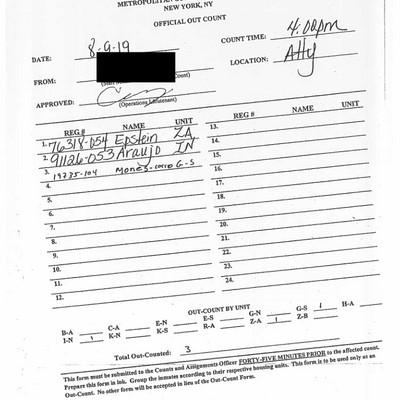 METROPOLITAN
NEW YORK, NY
OFFICIAL OUT COUNT
DATE: 8-9-19
COUNT TIME: 4:00pm
FROM:
Count)
LOCATION: Atty
APPROVED:
(Operations Lieutenant)
REG # NAME UNIT
1. 76318-054 Epstein ZA
2. 91126-053 Araujo IN
3. 19735-104 G-S
4.
5.
6.
7.
8.
9.
10.
11.
12.
13.
14.
15.
16.
17.
18.
19.
20.
21.
22.
23.
24.
OUT-COUNT BY UNIT
B-A C-A E-N E-S G-N G-S 1 H-A
I-N 1 K-N K-S R-A Z-A 1 Z-B
Total Out-Counted: 3
This form must be submitted to the Counts and Assignments Officer FORTY-FIVE MINUTES PRIOR to the affected count.
Prepare this form in ink. Group the inmates according to their respective housing units. This form is to be used only as an
Out-Count. No other form will be accepted in lieu of the Out-Count Form.